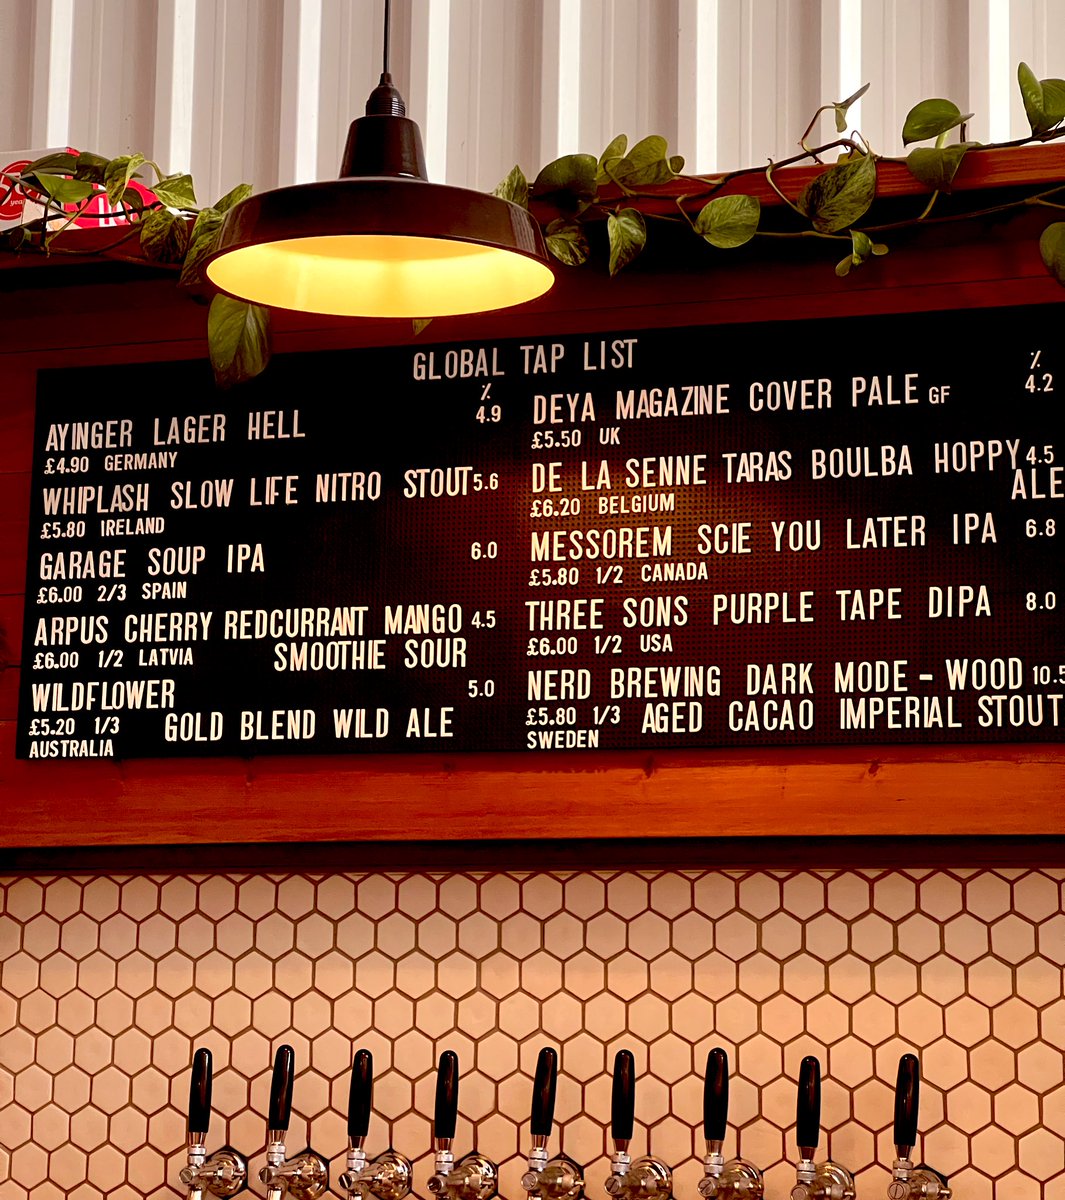 GLOBAL TAP LIST
%
AYINGER LAGER HELL 4.9
£4.90 GERMANY
WHIPLASH SLOW LIFE NITRO STOUT 5.6
£5.80 IRELAND
GARAGE SOUP IPA 6.0
£6.00 2/3 SPAIN
ARPUS CHERRY REDCURRANT MANGO 4.5
£6.00 1/2 LATVIA SMOOTHIE SOUR
WILDFLOWER 5.0
£5.20 1/3 GOLD BLEND WILD ALE
AUSTRALIA
%
DEYA MAGAZINE COVER PALE GF 4.2
£5.50 UK
DE LA SENNE TARAS BOULBA HOPPY 4.5
£6.20 BELGIUM ALE
MESSOREM SCIE YOU LATER IPA 6.8
£5.80 1/2 CANADA
THREE SONS PURPLE TAPE DIPA 8.0
£6.00 1/2 USA
NERD BREWING DARK MODE - WOOD 10.5
£5.80 1/3 AGED CACAO IMPERIAL STOUT
SWEDEN